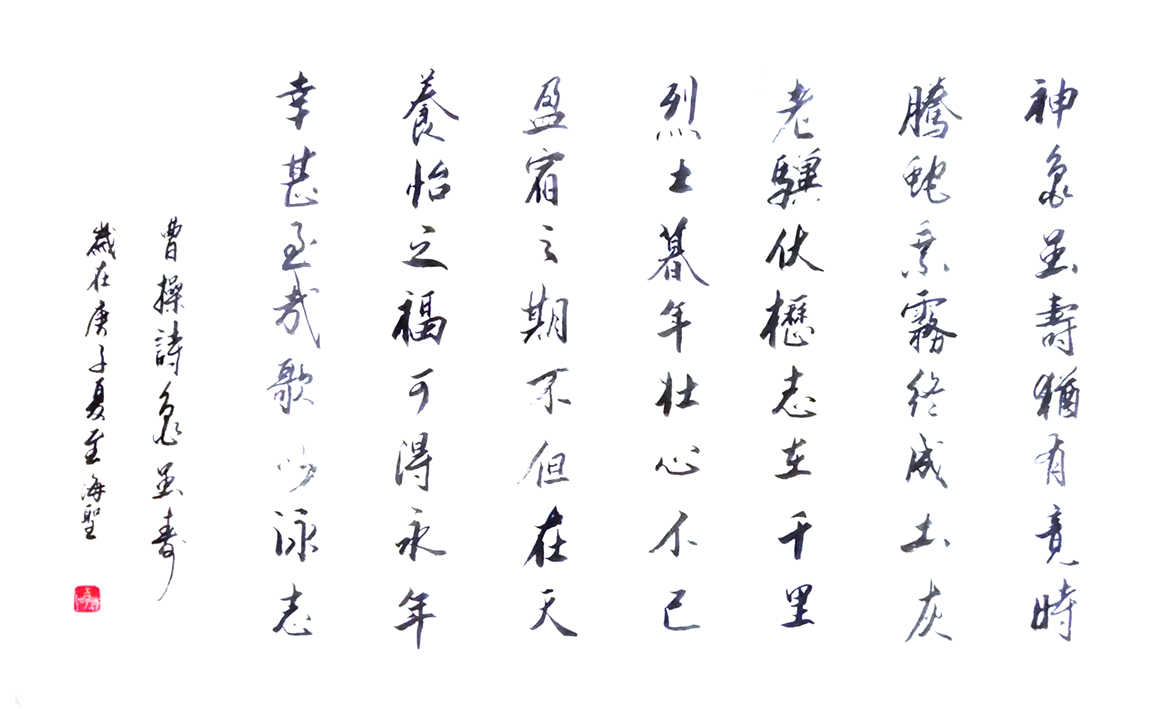 神龜虽壽猶有竟時
腾蛇乘霧终成土灰
老驥伏櫪志在千里
烈士暮年壮心不已
盈宿之期不但在天
養怡之福可得永年
幸甚至哉歌以詠志
曹操詩龜虽壽
歲在庚子夏至海聖